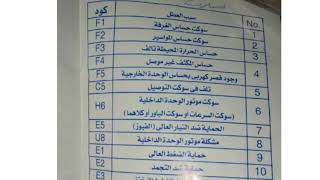 كود سبب العطل No.
F1 سوكت حساس الغرفة 1
F2 سوكت حساس المواسير 2
F3 حساس الحرارة المحيطة تالف 3
F4 حساس المكثف غير موصل 4
F5 وجود قصر كهربى بحساس الوحدة الخارجية
C5 تلف فى سوكت التوصيل 5
H6 سوكت موتور الوحدة الداخلية 6
(سوكت السرعات أو سوكت الباور أو كلاهما)
E5 الحماية ضد التيار العالى (الفيوز) 7
U8 مشكلة موتور الوحدة الداخلية 8
E1 حماية الضغط العالى 9
E2 حماية ضد التجمد 10
E3